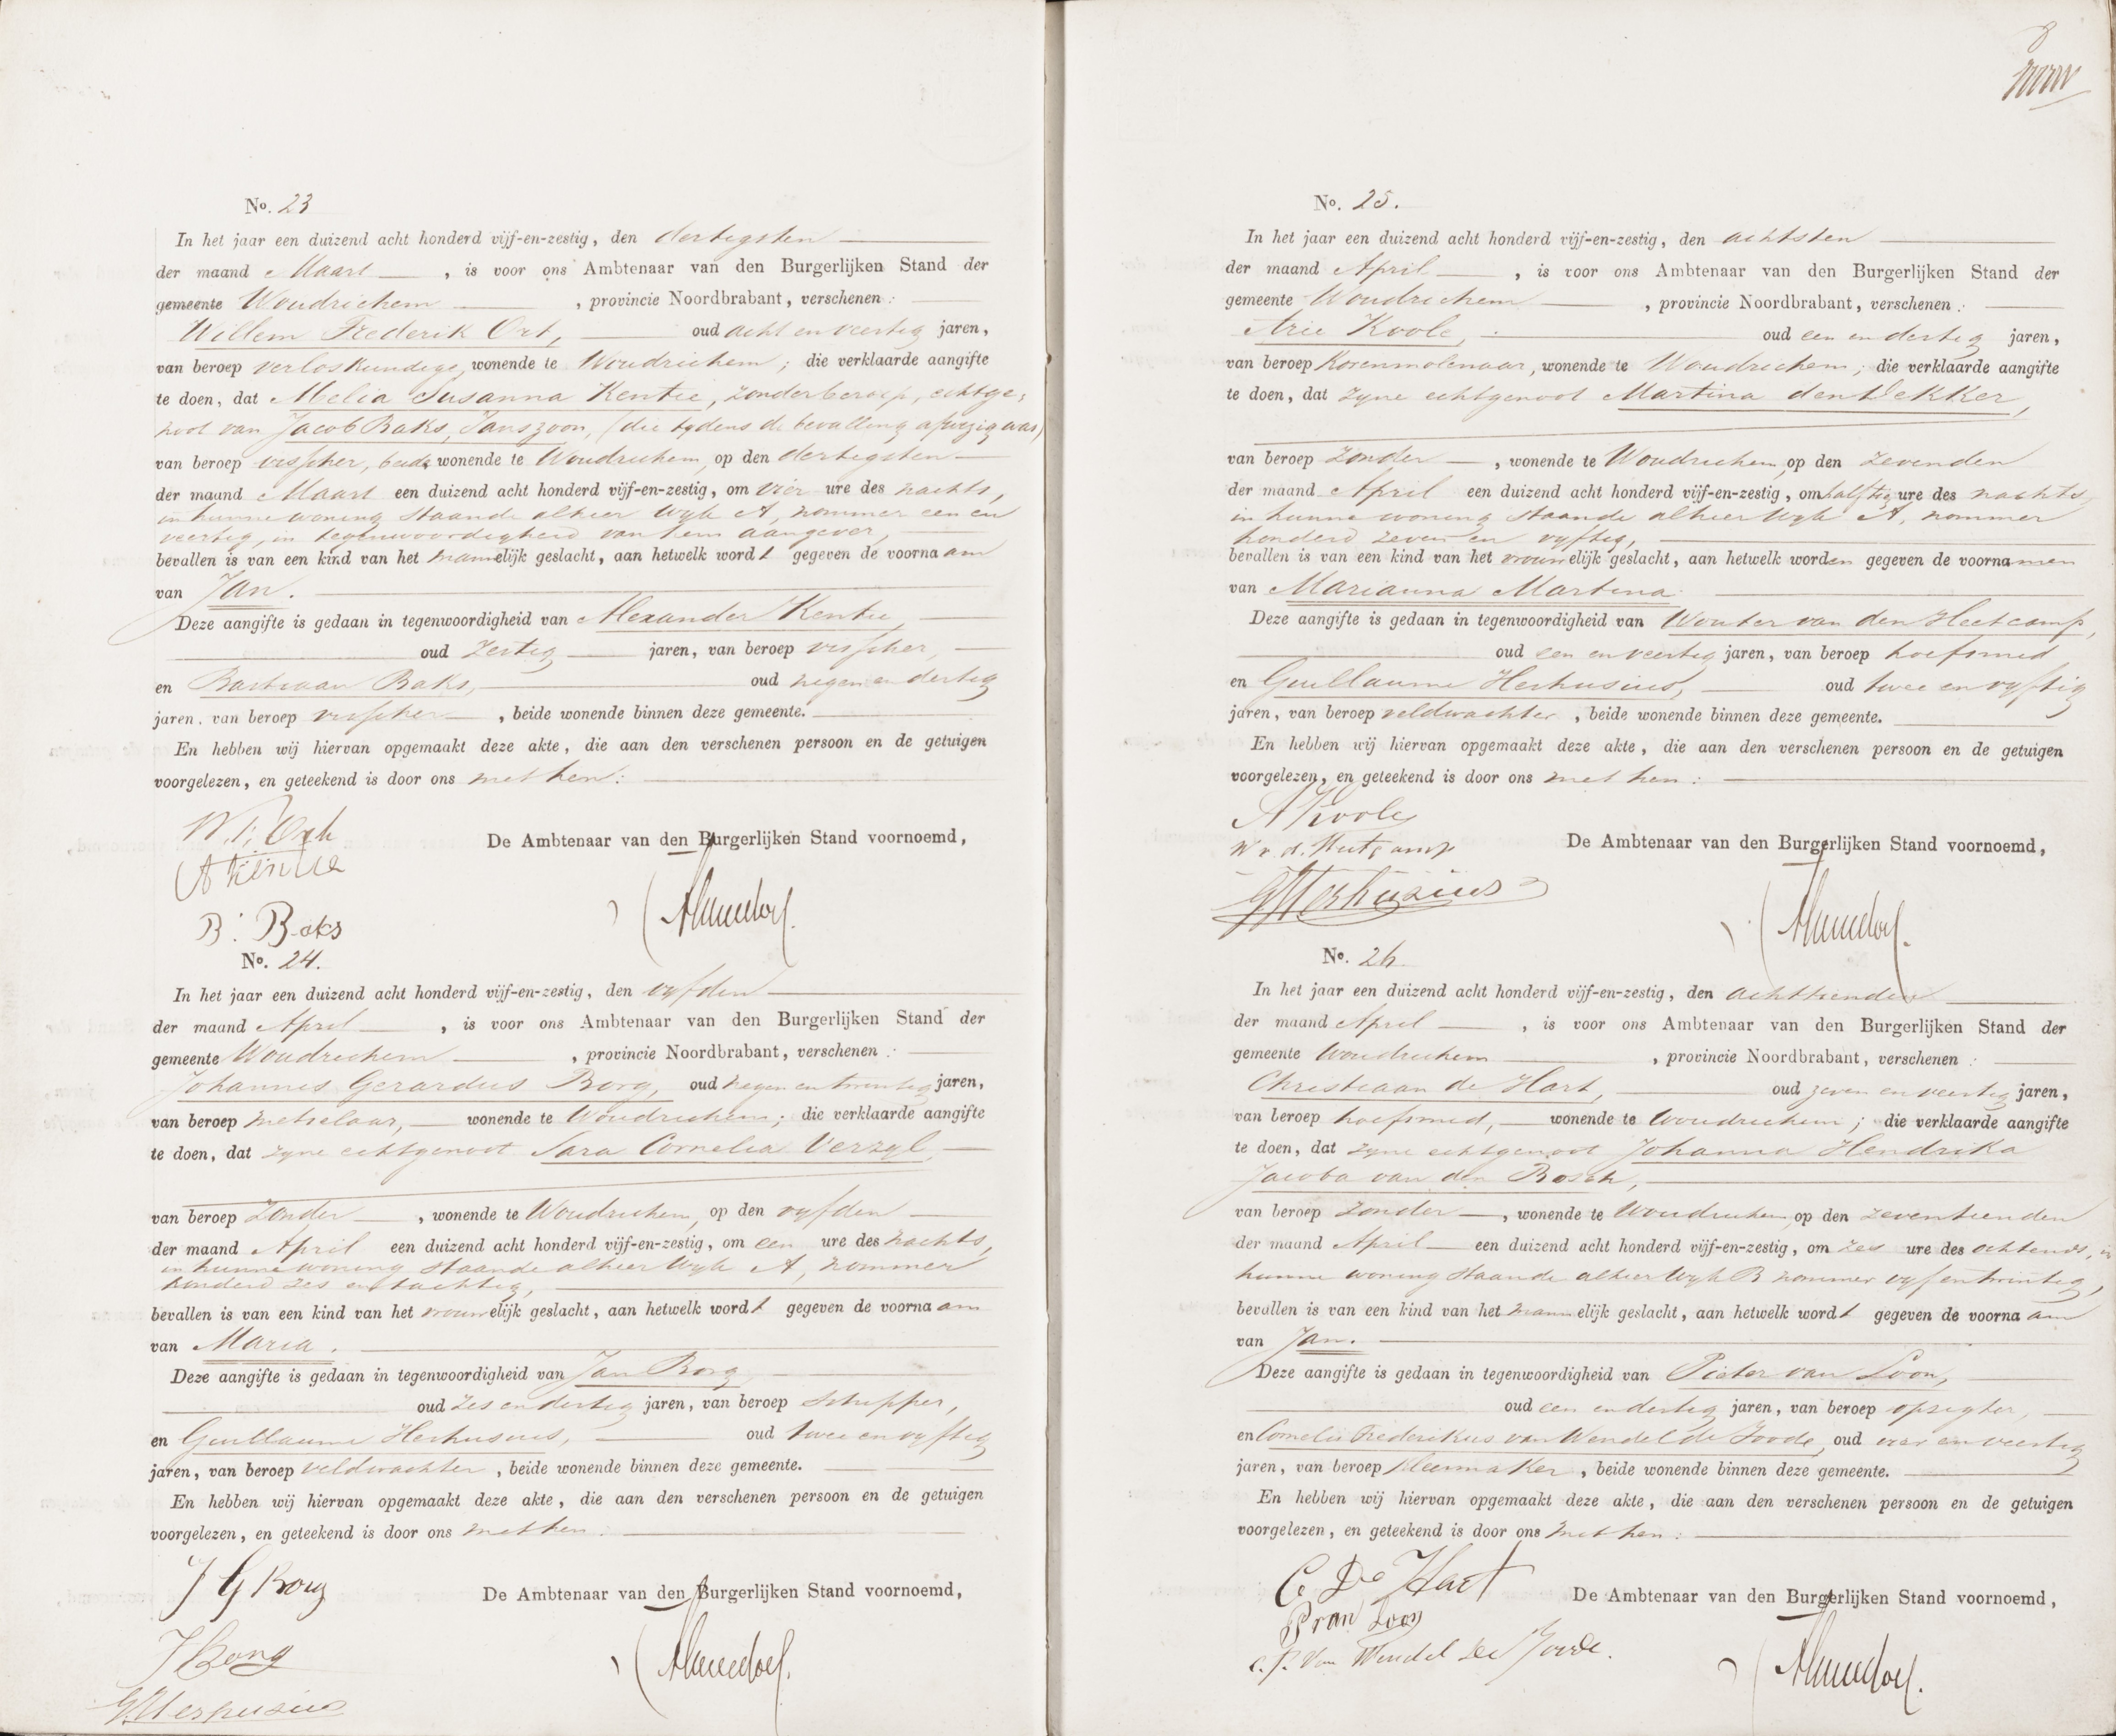 No. 23
In het jaar een duizend acht honderd vijf-en-zestig, den dertigsten
der maand Maart, is voor ons Ambtenaar van den Burgerlijken Stand der
gemeente Woudrichem, provincie Noordbrabant, verschenen:
Willem Frederik Ort, oud acht en veertig jaren,
van beroep verloskundige, wonende te Woudrichem; die verklaarde aangifte
te doen, dat Melia Susanna Kentie, zonder beroep, echtge-
noot van Jacob Baks, Janszoon, (die tydens de bevalling afwezig was)
van beroep visscher, beide wonende te Woudrichem, op den dertigsten
der maand Maart een duizend acht honderd vijf-en-zestig, om vier ure des nachts,
in hunne woning staande alhier Wyk A, nommer een en
veertig, in tegenwoordigheid van hem aangever,
bevallen is van een kind van het mannelijk geslacht, aan hetwelk wordt gegeven de voornaam
van Jan.
Deze aangifte is gedaan in tegenwoordigheid van Alexander Kentie,
oud zestig jaren, van beroep visscher,
en Bastiaan Baks, oud negen en dertig
jaren, van beroep visscher, beide wonende binnen deze gemeente.
En hebben wij hiervan opgemaakt deze akte, die aan den verschenen persoon en de getuigen
voorgelezen, en geteekend is door ons met hen:
W. F. Ort
A Kentie
B. Baks
De Ambtenaar van den Burgerlijken Stand voornoemd,
No. 24.
In het jaar een duizend acht honderd vijf-en-zestig, den vyfden
der maand April, is voor ons Ambtenaar van den Burgerlijken Stand der
gemeente Woudrichem, provincie Noordbrabant, verschenen:
Johannes Gerardus Borg, oud negen en twintig jaren,
van beroep metselaar, wonende te Woudrichem; die verklaarde aangifte
te doen, dat zyne echtgenoot Sara Cornelia Verzyl,
van beroep zonder, wonende te Woudrichem, op den vyfden
der maand April een duizend acht honderd vijf-en-zestig, om een ure des nachts,
in hunne woning staande alhier Wyk A, nommer
honderd zes en tachtig,
bevallen is van een kind van het vrouwelijk geslacht, aan hetwelk wordt gegeven de voornaam
van Maria.
Deze aangifte is gedaan in tegenwoordigheid van Jan Borg,
oud zes en dertig jaren, van beroep schipper,
en Guillaume Herhusius, oud twee en vyftig
jaren, van beroep veldwachter, beide wonende binnen deze gemeente.
En hebben wij hiervan opgemaakt deze akte, die aan den verschenen persoon en de getuigen
voorgelezen, en geteekend is door ons met hen:
J G Borg
J Borg
G Herhusius
De Ambtenaar van den Burgerlijken Stand voornoemd,
8
No. 25.
In het jaar een duizend acht honderd vijf-en-zestig, den achtsten
der maand April, is voor ons Ambtenaar van den Burgerlijken Stand der
gemeente Woudrichem, provincie Noordbrabant, verschenen:
Arie Koole, oud een en dertig jaren,
van beroep Korenmolenaar, wonende te Woudrichem; die verklaarde aangifte
te doen, dat zyne echtgenoot Martina den Dekker,
van beroep zonder, wonende te Woudrichem, op den zevenden
der maand April een duizend acht honderd vijf-en-zestig, om half tig ure des nachts,
in hunne woning staande alhier Wyk A, nommer
honderd zeven en vyftig,
bevallen is van een kind van het vrouwelijk geslacht, aan hetwelk worden gegeven de voornamen
van Marianna Martina.
Deze aangifte is gedaan in tegenwoordigheid van Wouter van den Heetcamp,
oud een en veertig jaren, van beroep hoefsmid
en Guillaume Herhusius, oud twee en vyftig
jaren, van beroep veldwachter, beide wonende binnen deze gemeente.
En hebben wij hiervan opgemaakt deze akte, die aan den verschenen persoon en de getuigen
voorgelezen, en geteekend is door ons met hen:
A Koole
W v. d. Heetcamp
G Herhusius
De Ambtenaar van den Burgerlijken Stand voornoemd,
No. 26
In het jaar een duizend acht honderd vijf-en-zestig, den achttienden
der maand April, is voor ons Ambtenaar van den Burgerlijken Stand der
gemeente Woudrichem, provincie Noordbrabant, verschenen:
Christiaan de Hart, oud zeven en veertig jaren,
van beroep hoefsmid, wonende te Woudrichem; die verklaarde aangifte
te doen, dat zyne echtgenoot Johanna Hendrika
Jacoba van den Bosch,
van beroep zonder, wonende te Woudrichem, op den zeventienden
der maand April een duizend acht honderd vijf-en-zestig, om zes ure des ochtends, in
hunne woning staande alhier Wyk B nommer vyf en twintig,
bevallen is van een kind van het mannelijk geslacht, aan hetwelk wordt gegeven de voornaam
van Jan.
Deze aangifte is gedaan in tegenwoordigheid van Pieter van Loon,
oud een en dertig jaren, van beroep opzigter,
en Cornelis Frederikus van Wendel de Joode, oud vier en veertig
jaren, van beroep kleermaker, beide wonende binnen deze gemeente.
En hebben wij hiervan opgemaakt deze akte, die aan den verschenen persoon en de getuigen
voorgelezen, en geteekend is door ons met hen:
C De Hart
P van Loon
C. F. Van Wendel De Joode.
De Ambtenaar van den Burgerlijken Stand voornoemd,